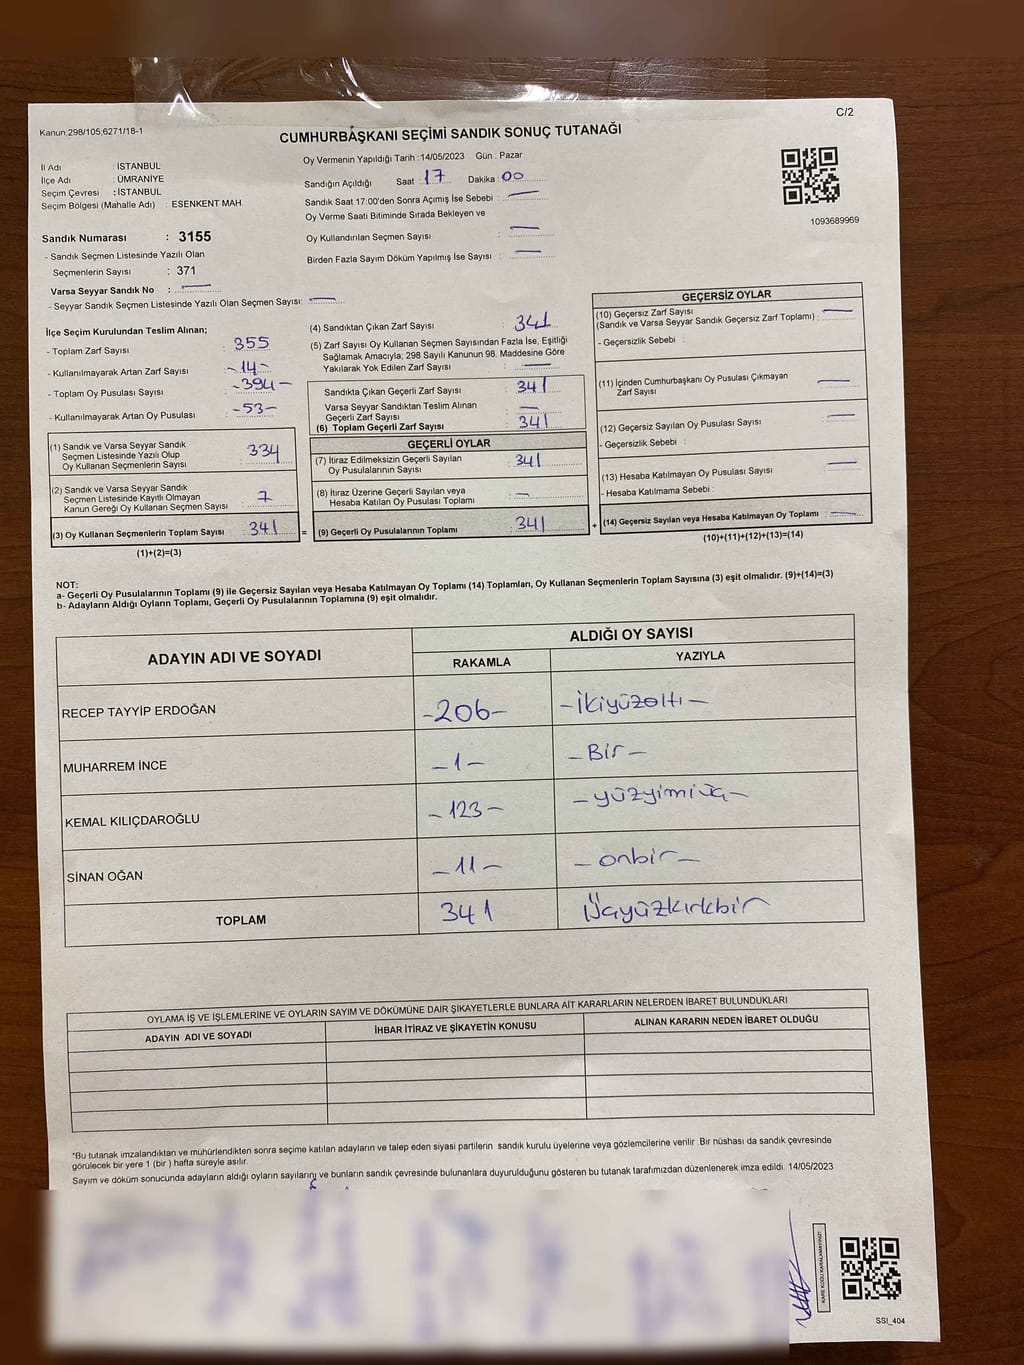 C/2
Kanun.298/105;6271/18-1
CUMHURBAŞKANI SEÇİMİ SANDIK SONUÇ TUTANAĞI
İl Adı : İSTANBUL
İlçe Adı : ÜMRANİYE
Seçim Çevresi : İSTANBUL
Seçim Bölgesi (Mahalle Adı) : ESENKENT MAH.
Oy Vermenin Yapıldığı Tarih : 14/05/2023 Gün : Pazar
Sandığın Açıldığı Saat : 17 Dakika : 00
Sandık Saat 17:00'den Sonra Açımış İse Sebebi : —
Oy Verme Saati Bitiminde Sırada Bekleyen ve
Oy Kullandırılan Seçmen Sayısı : —
Birden Fazla Sayım Döküm Yapılmış İse Sayısı : —
1093689969
Sandık Numarası : 3155
- Sandık Seçmen Listesinde Yazılı Olan
Seçmenlerin Sayısı : 371
Varsa Seyyar Sandık No : —
- Seyyar Sandık Seçmen Listesinde Yazılı Olan Seçmen Sayısı: —
İlçe Seçim Kurulundan Teslim Alınan;
- Toplam Zarf Sayısı : 355
- Kullanılmayarak Artan Zarf Sayısı : -14-
- Toplam Oy Pusulası Sayısı : -394-
- Kullanılmayarak Artan Oy Pusulası : -53-
(1) Sandık ve Varsa Seyyar Sandık
Seçmen Listesinde Yazılı Olup
Oy Kullanan Seçmenlerin Sayısı : 334
(2) Sandık ve Varsa Seyyar Sandık
Seçmen Listesinde Kayıtlı Olmayan
Kanun Gereği Oy Kullanan Seçmen Sayısı : 7
(3) Oy Kullanan Seçmenlerin Toplam Sayısı : 341 =
(1)+(2)=(3)
(4) Sandıktan Çıkan Zarf Sayısı : 341
(5) Zarf Sayısı Oy Kullanan Seçmen Sayısından Fazla İse, Eşitliği
Sağlamak Amacıyla; 298 Sayılı Kanunun 98. Maddesine Göre
Yakılarak Yok Edilen Zarf Sayısı : —
Sandıkta Çıkan Geçerli Zarf Sayısı : 341
Varsa Seyyar Sandıktan Teslim Alınan
Geçerli Zarf Sayısı : —
(6) Toplam Geçerli Zarf Sayısı : 341
GEÇERLİ OYLAR
(7) İtiraz Edilmeksizin Geçerli Sayılan
Oy Pusulalarının Sayısı : 341
(8) İtiraz Üzerine Geçerli Sayılan veya
Hesaba Katılan Oy Pusulası Toplamı : —
(9) Geçerli Oy Pusulalarının Toplamı : 341 +
GEÇERSİZ OYLAR
(10) Geçersiz Zarf Sayısı
(Sandık ve Varsa Seyyar Sandık Geçersiz Zarf Toplamı) : —
- Geçersizlik Sebebi :
(11) İçinden Cumhurbaşkanı Oy Pusulası Çıkmayan
Zarf Sayısı : —
(12) Geçersiz Sayılan Oy Pusulası Sayısı : —
- Geçersizlik Sebebi :
(13) Hesaba Katılmayan Oy Pusulası Sayısı : —
- Hesaba Katılmama Sebebi :
(14) Geçersiz Sayılan veya Hesaba Katılmayan Oy Toplamı : —
(10)+(11)+(12)+(13)=(14)
NOT:
a- Geçerli Oy Pusulalarının Toplamı (9) ile Geçersiz Sayılan veya Hesaba Katılmayan Oy Toplamı (14) Toplamları, Oy Kullanan Seçmenlerin Toplam Sayısına (3) eşit olmalıdır. (9)+(14)=(3)
b- Adayların Aldığı Oyların Toplamı, Geçerli Oy Pusulalarının Toplamına (9) eşit olmalıdır.
ADAYIN ADI VE SOYADI
ALDIĞI OY SAYISI
RAKAMLA YAZIYLA
RECEP TAYYİP ERDOĞAN -206- -İkiyüzaltı-
MUHARREM İNCE -1- -Bir-
KEMAL KILIÇDAROĞLU -123- -yüzyimiüç-
SİNAN OĞAN -11- -onbir-
TOPLAM 341 Üçyüzkırkbir
OYLAMA İŞ VE İŞLEMLERİNE VE OYLARIN SAYIM VE DÖKÜMÜNE DAİR ŞİKAYETLERLE BUNLARA AİT KARARLARIN NELERDEN İBARET BULUNDUKLARI
ADAYIN ADI VE SOYADI İHBAR İTİRAZ VE ŞİKAYETİN KONUSU ALINAN KARARIN NEDEN İBARET OLDUĞU
*Bu tutanak imzalandıktan ve mühürlendikten sonra seçime katılan adayların ve talep eden siyasi partilerin sandık kurulu üyelerine veya gözlemcilerine verilir .Bir nüshası da sandık çevresinde
görülecek bir yere 1 (bir ) hafta süreyle asılır.
Sayım ve döküm sonucunda adayların aldığı oyların sayılarını ve bunların sandık çevresinde bulunanlara duyurulduğunu gösteren bu tutanak tarafımızdan düzenlenerek imza edildi. 14/05/2023
KARE KODU KARALAMAYINIZ!
SSI_404